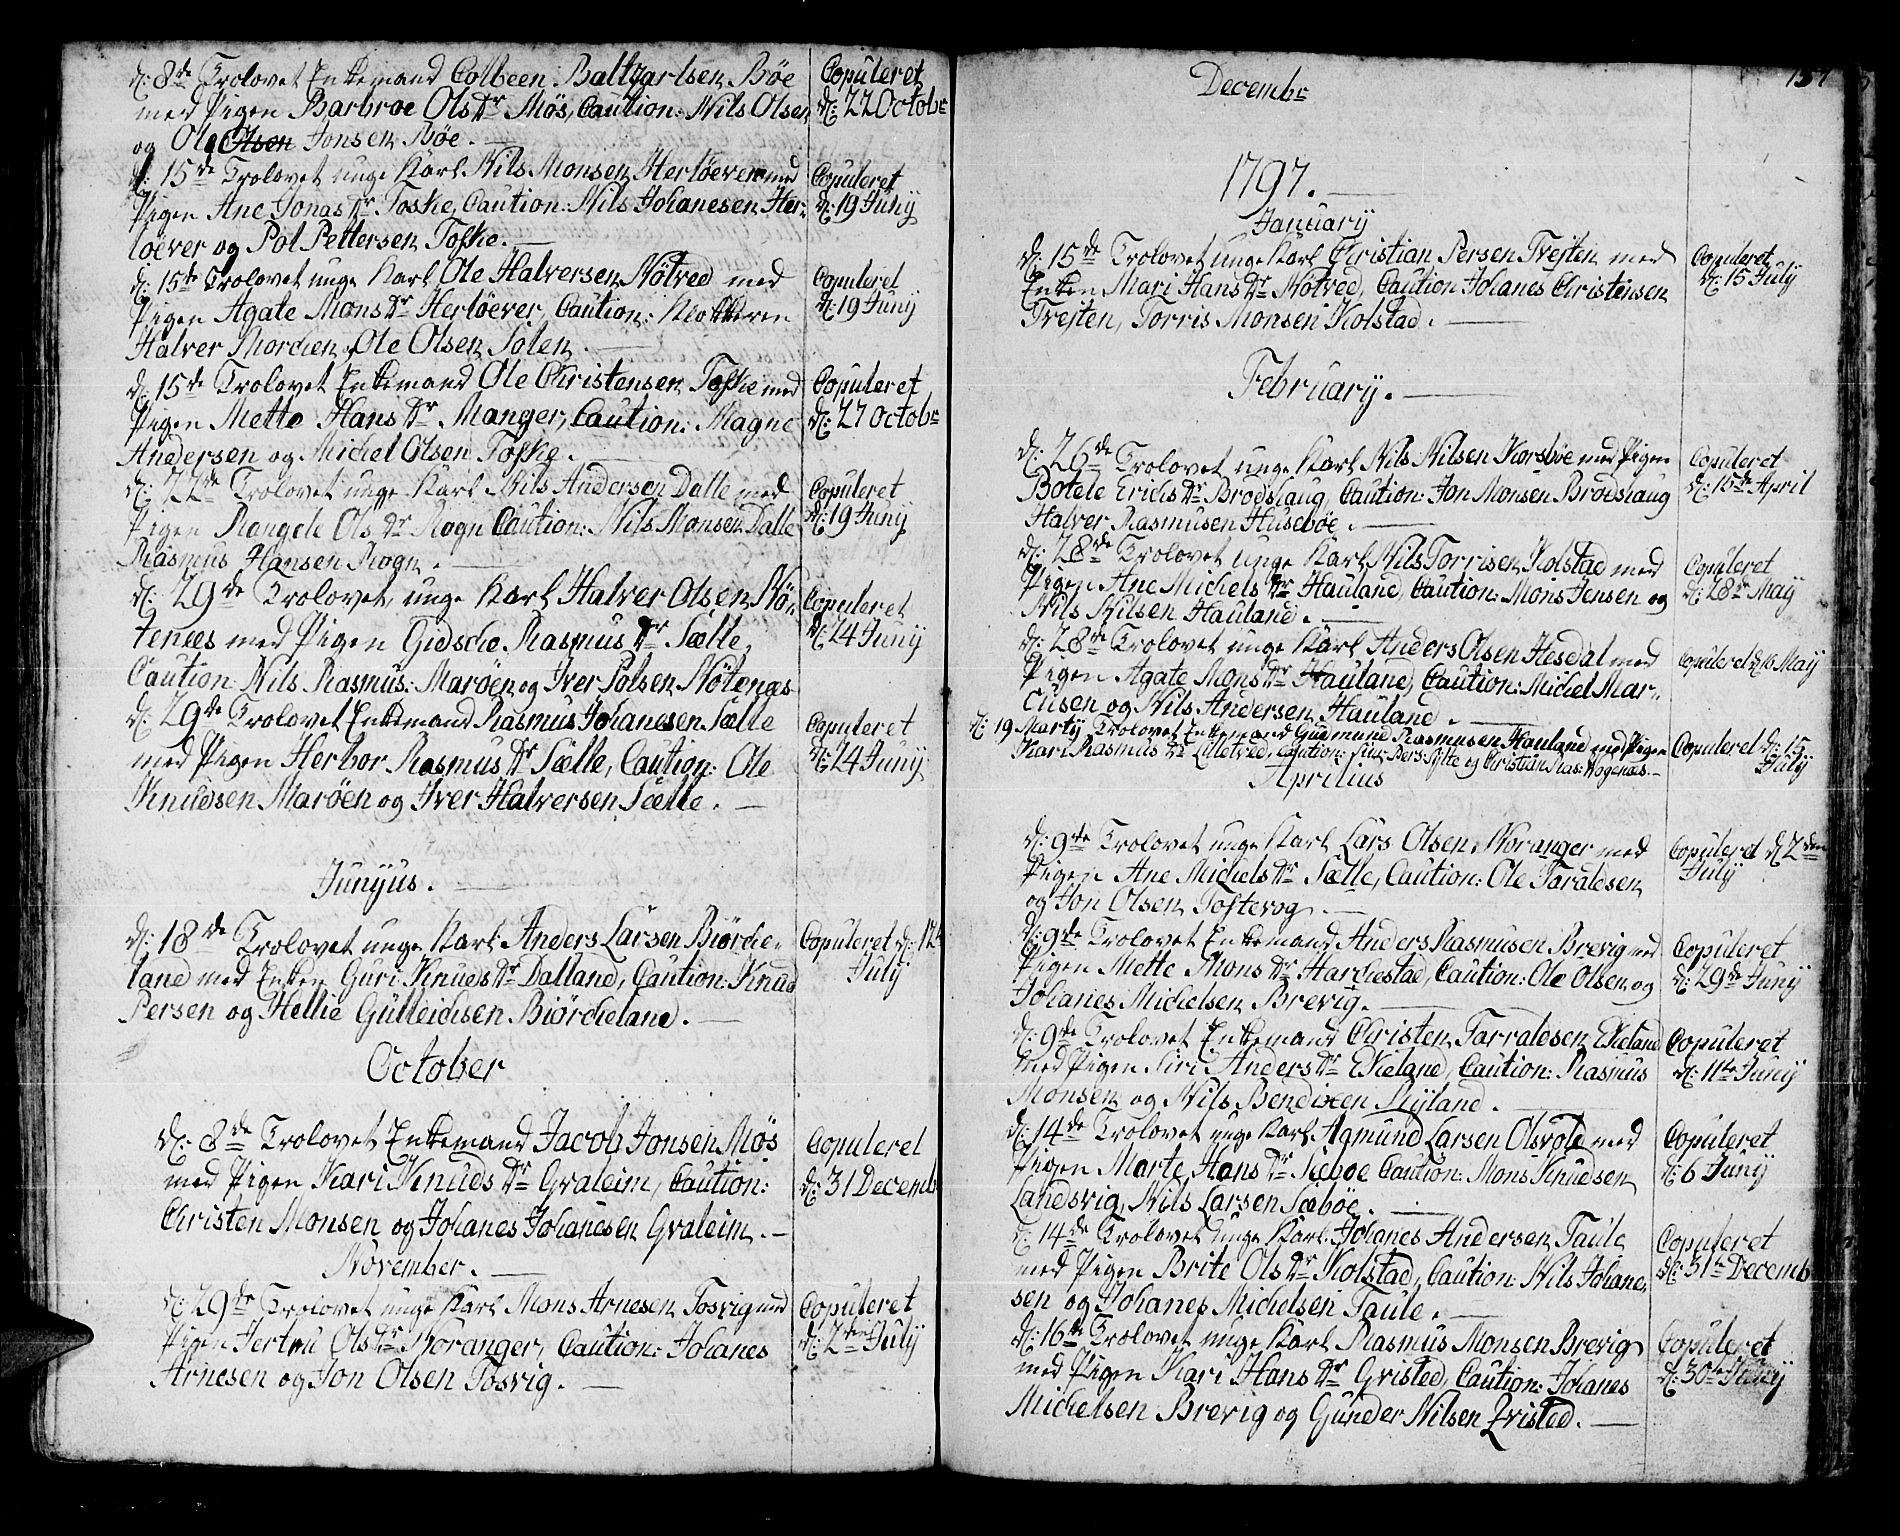 d: 8de Trolovet Enkemand Colbeen Baltzarlsen Bøe
med Pigen Barbroe Ols Dr Møs, Caution: Nils Olsen
og Ole Olsen Jonsen Bøe.
Copuleret
d: 22 Octobr
d: 15de Trolovet unge Karl Nils Monsen Herløever med
Pigen Ane Jonas Dr Toske, Caution: Nils Johanesen Her-
løever og Pol Pettersen Toske.
Copuleret
d: 19 Juny
d: 15de Trolovet unge Karl Ole Halversen Nøtved med
Pigen Agate Mons Dr Herløever, Caution: Klokkeren
Halver Mordien, Ole Olsen Solen.
Copuleret
d: 19 Juny
d: 15de Trolovet Enkemand Ole Christensen Toske med
Pigen Mette Hans Dr Manger, Caution: Magne
Andersen og Michel Olsen Toske.
Copuleret
d: 27 Octobr
d: 22de Trolovet unge Karl Nils Andersen Dalle med
Pigen Rangele Ols Dr Rogn Caution: Nils Monsen Dalle
Rasmus Hansen Rogn.
Copuleret
d: 19 Juny
d: 29de Trolovet unge Karl Halver Olsen Nø-
tenees med Pigen Gidsche Rasmus Dr Sælle,
Caution: Nils Rasmus: Marøen og Iver Polsen Nøtenæs
Copuleret
d: 24 Juny
d: 29de Trolovet Enkemand Rasmus Johanesen Sælle
med Pigen Herbor Rasmus Dr Sælle, Caution: Ole
Knudsen Marøen og Iver Halversen Sælle.
Copuleret
d: 24 Juny
Junyus.
d: 18de Trolovet unge Karl Anders Larsen Biørche-
land med Enken Guri Knuds Dr Dalland, Caution: Knud
Persen og Hellie Gulleichsen Biørcheland.
Copuleret d: 12te
July
October
d: 8de Trolovet Enkemand Jacob Jonsen Møs
med Pigen Kari Knuds Dr Gvaleim, Caution:
Christen Monsen og Johanes Johanesen Gvaleim.
Copuleret
d: 31 Decemb
November.
d: 29de Trolovet unge Karl Mons Arnesen Tosvig med
Pigen Jertru Ols Dr Noranger, Caution: Johanes
Arnesen og Jon Olsen Tosvig.
Copuleret
d: 2den July
Decembr
1797.
January
d: 15de Trolovet unge Karl Christian Persen Trejten med
Enken Mari Hans Dr Nøtved, Caution Johanes Christensen
Trejten, Torris Monsen Kolstad.
Copuleret
d: 15 July
February.
d: 26de Trolovet unge Karl Nils Nilsen Korsbøe med Pigen
Botele Erichs Dr Brodshaug, Caution: Jon Monsen Brodshaug
Halver Rasmusen Husebøe.
Copuleret
d: 16de April
d: 28de Trolovet unge Karl Nils Torrisen Kolstad med
Pigen Ane Michels Dr Hauland, Caution: Mons Jensen og
Nils Nilsen Hauland.
Copuleret
d: 28de May
d: 28de Trolovet unge Karl Anders Olsen Hesdal med
Pigen Agate Mons Dr Hauland, Caution: Michel Mar-
cusen og Nils Andersen Hauland.
Copuleret d: 16 May
d: 19 Marty Trolovet Enkemand Gudmund Rasmusen Hauland med Pigen
Kari Rasmus Dr Liletved, Caution: Siur Pers: Sylte og Christian Ras: Wogenæs.
Copuleret d: 15
July
Aprilius
d: 9de Trolovet unge Karl Lars Olsen Noranger med
Pigen Ane Michels Dr Sælle, Caution: Ole Taraldsen
og Jon Olsen Toftevog.
Copuleret d 2den
July
d: 9de Trolovet Enkemand Anders Rasmusen Brevig med
Pigen Mette Mons Dr Harchestad, Caution: Ole Olsen og
Johanes Michelsen Brevig.
Copuleret
d: 29de Juny
d: 9de Trolovet Enkemand Christen Tarraldsen Ekieland
med Pigen Siri Anders Dr Ekieland, Caution: Rasmus
Monsen og Nils Bendixen Ryland.
Copuleret
d: 11te Juny
d: 14de Trolovet unge Karl Agmund Larsen Olsvold med
Pigen Marte Hans Dr Sæbøe Caution: Mons Knudsen
Landsvig, Nils Larsen Sæbøe.
Copuleret
d: 6 Juny
d: 14de Trolovet unge Karl Johanes Andersen Taule
med Pigen Brite Ols Dr Kolstad, Caution: Nils Johane-
sen og Johanes Michelsen Taule.
Copuleret
d: 31te Decemb
d: 16de Trolovet unge Karl Rasmus Monsen Brevig
med Pigen Kari Hans Dr Gvisted, Caution: Johanes
Michelsen Brevig og Gunder Nilsen Qvisted.
Copuleret
d: 30te July